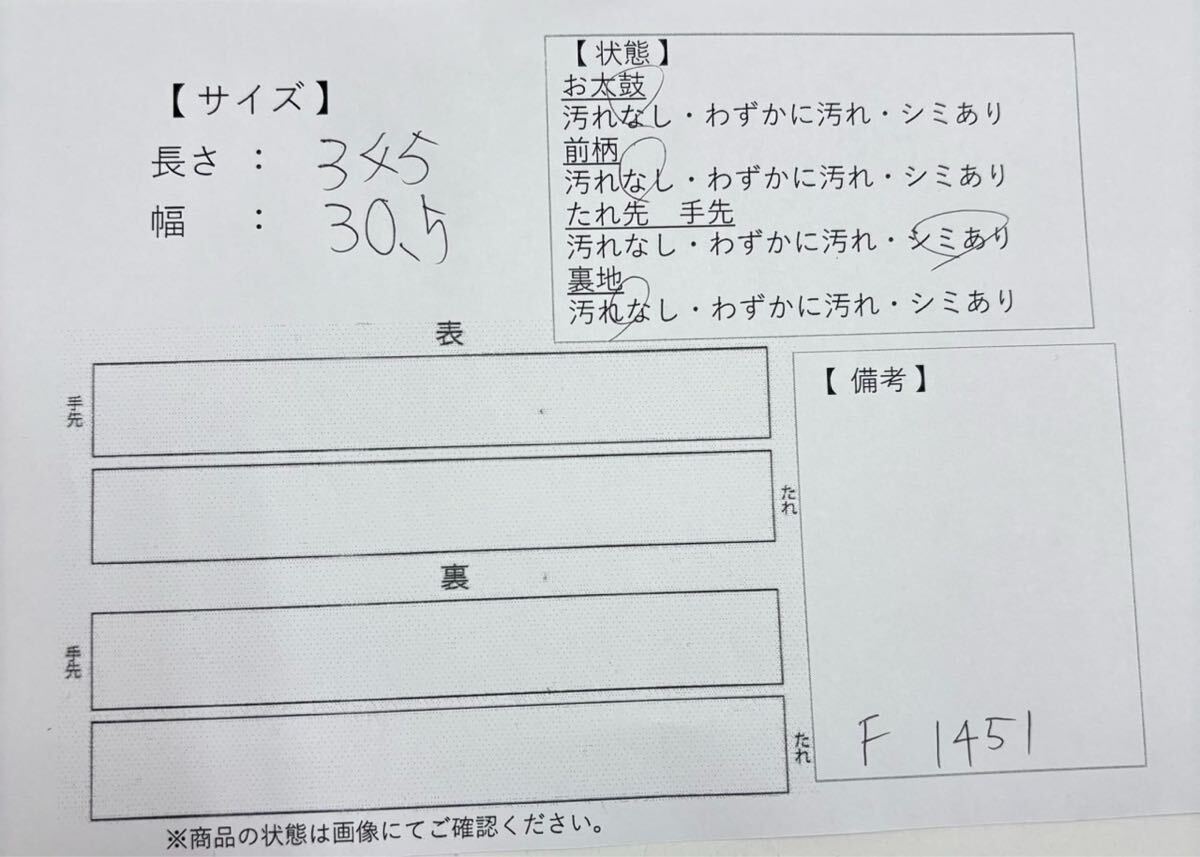 【 サイズ 】
長さ ： 345
幅 ： 30.5
【 状態 】
お太鼓
汚れなし・わずかに汚れ・シミあり
前柄
汚れなし・わずかに汚れ・シミあり
たれ先　手先
汚れなし・わずかに汚れ・シミあり
裏地
汚れなし・わずかに汚れ・シミあり
表
手先
たれ
裏
手先
たれ
【 備考 】
F 1451
※商品の状態は画像にてご確認ください。